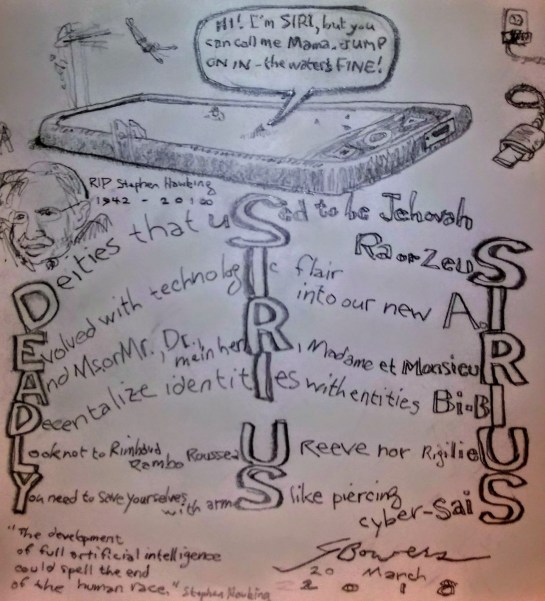 HI! I'm SIRI, but you
can call me Mama. JUMP
ON IN - the water's FINE!
RIP Stephen Hawking
1942 - 2018
Deities that uSed to be Jehovah
Ra or ZeuS
Evolved with technologIc flair
into our new A.I
And Ms or Mr. Dr., mein herR, Madame et MonsieuR
Decentalize identitIes with entities Bi-BI
Look not to Rimbaud
Rambo RousseaU Reeve nor RigilieU
You need to save yourselves
with armS like piercing
cyber-SaiS
"The development
of full artificial intelligence
could spell the end
of the human race." Stephen Hawking
SBowers
20 March
2018